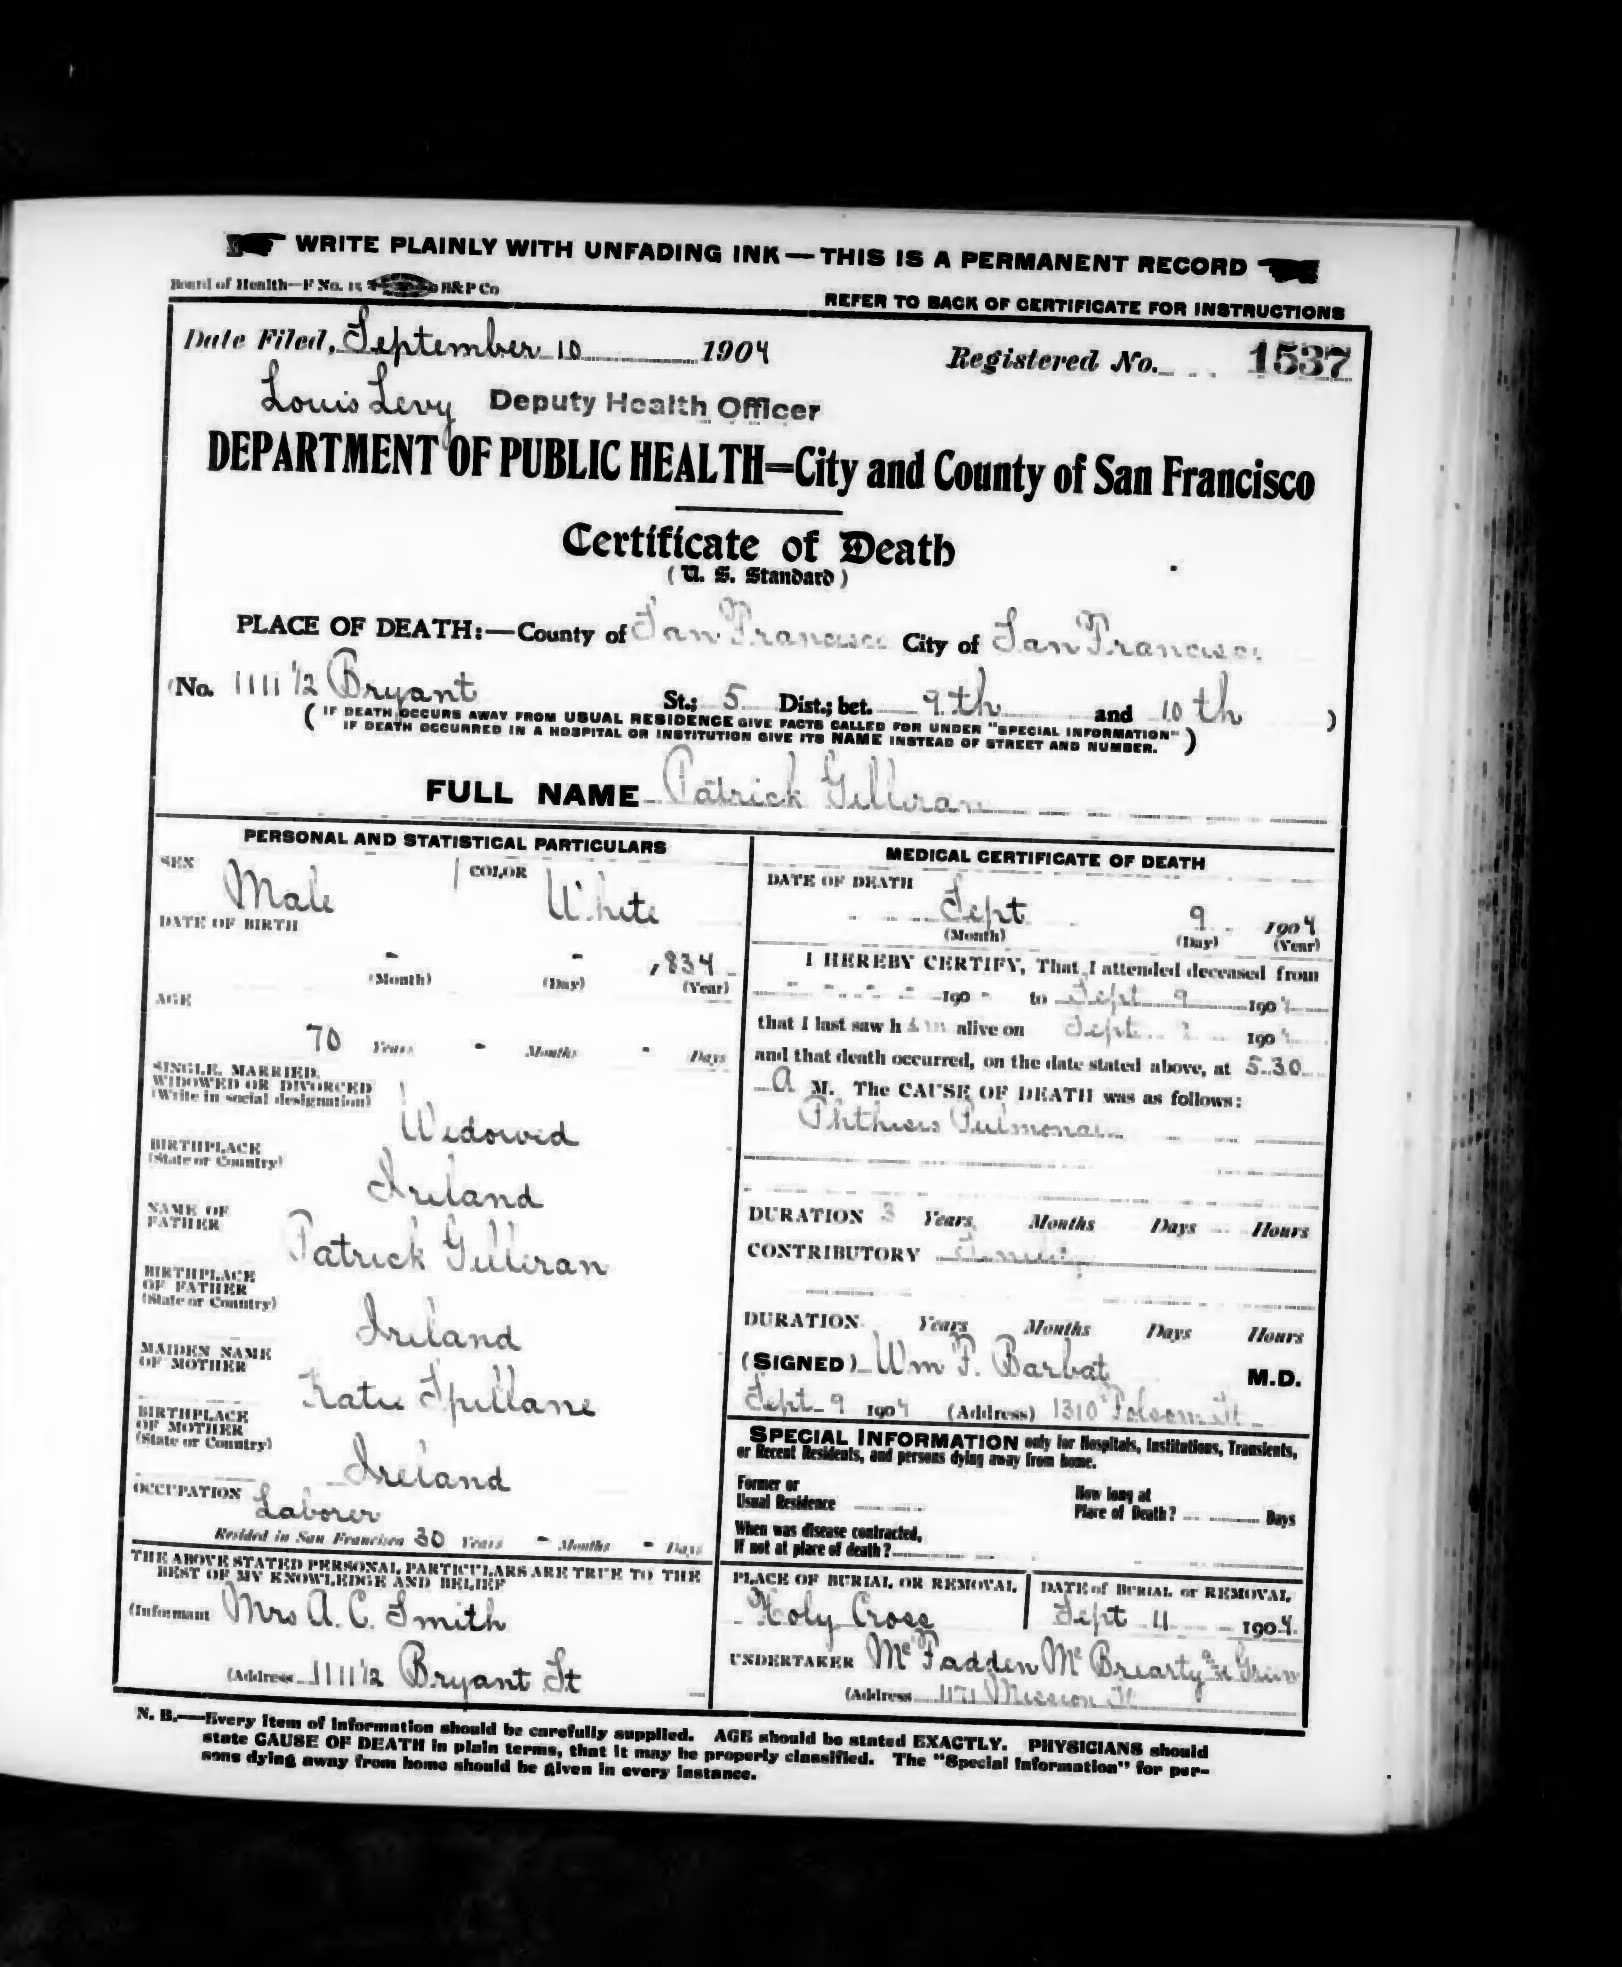 WRITE PLAINLY WITH UNFADING INK — THIS IS A PERMANENT RECORD
Board of Health—F No. 15 H&P Co
REFER TO BACK OF CERTIFICATE FOR INSTRUCTIONS
Date Filed, September 10 1904 Registered No. 1537
Louis Levy Deputy Health Officer
DEPARTMENT OF PUBLIC HEALTH=City and County of San Francisco
Certificate of Death
(U. S. Standard)
PLACE OF DEATH:—County of San Francisco City of San Francisco
(No. 1111 1/2 Bryant St.; 5 Dist.; bet. 9th and 10th )
( IF DEATH OCCURS AWAY FROM USUAL RESIDENCE GIVE FACTS CALLED FOR UNDER "SPECIAL INFORMATION"
IF DEATH OCCURRED IN A HOSPITAL OR INSTITUTION GIVE ITS NAME INSTEAD OF STREET AND NUMBER. )
FULL NAME Patrick Gilleran
PERSONAL AND STATISTICAL PARTICULARS
SEX Male COLOR White
DATE OF BIRTH
- - 1834
(Month) (Day) (Year)
AGE
70 Years - Months - Days
SINGLE, MARRIED,
WIDOWED OR DIVORCED
(Write in social designation)
Widowed
BIRTHPLACE
(State or Country)
Ireland
NAME OF
FATHER
Patrick Gilleran
BIRTHPLACE
OF FATHER
(State or Country)
Ireland
MAIDEN NAME
OF MOTHER
Katie Spillane
BIRTHPLACE
OF MOTHER
(State or Country)
Ireland
OCCUPATION Laborer
Resided in San Francisco 30 Years - Months - Days
THE ABOVE STATED PERSONAL PARTICULARS ARE TRUE TO THE
BEST OF MY KNOWLEDGE AND BELIEF
(Informant Mrs A. C. Smith
(Address 1111 1/2 Bryant St
MEDICAL CERTIFICATE OF DEATH
DATE OF DEATH
Sept 9 1904
(Month) (Day) (Year)
I HEREBY CERTIFY, That I attended deceased from
190 to Sept 9 1904
that I last saw him alive on Sept 190
and that death occurred, on the date stated above, at 5.30
A M. The CAUSE OF DEATH was as follows:
Phthisis Pulmonalis
DURATION 3 Years Months Days Hours
CONTRIBUTORY
DURATION Years Months Days Hours
(SIGNED) Wm P. Barbat M.D.
Sept 9 1904 (Address) 1310 Folsom St
SPECIAL INFORMATION only for Hospitals, Institutions, Transients,
or Recent Residents, and persons dying away from home.
Former or
Usual Residence
How long at
Place of Death? Days
When was disease contracted,
If not at place of death?
PLACE OF BURIAL OR REMOVAL
Holy Cross
DATE of BURIAL or REMOVAL
Sept 11 1904
UNDERTAKER McFadden McBrearty & Green
(Address 1171 Mission St
N. B.—Every item of information should be carefully supplied. AGE should be stated EXACTLY. PHYSICIANS should
state CAUSE OF DEATH in plain terms, that it may be properly classified. The "Special Information" for per-
sons dying away from home should be given in every instance.